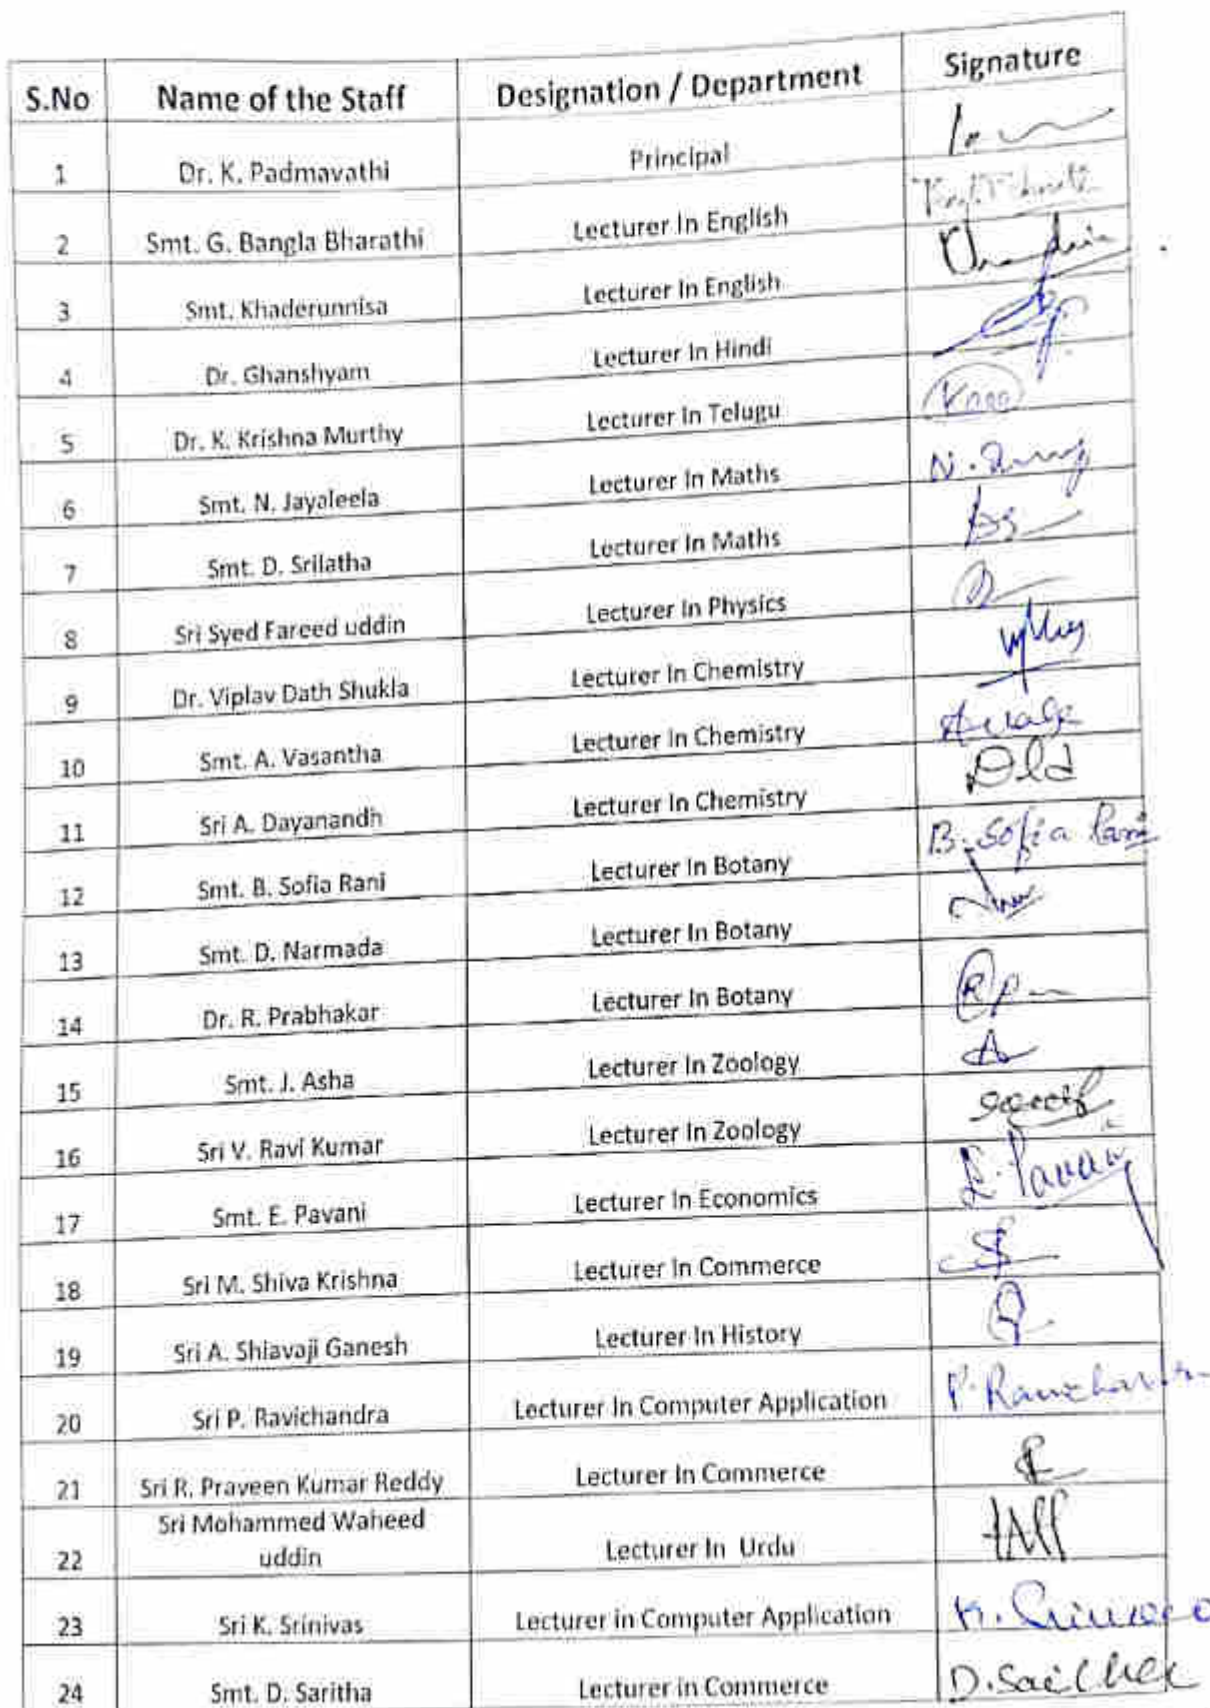 S.No Name of the Staff Designation / Department Signature
1 Dr. K. Padmavathi Principal
2 Smt. G. Bangla Bharathi Lecturer In English
3 Smt. Khaderunnisa Lecturer In English
4 Dr. Ghanshyam Lecturer In Hindi
5 Dr. K. Krishna Murthy Lecturer In Telugu
6 Smt. N. Jayaleela Lecturer In Maths
7 Smt. D. Srilatha Lecturer In Maths
8 Sri Syed Fareed uddin Lecturer In Physics
9 Dr. Viplav Dath Shukla Lecturer In Chemistry
10 Smt. A. Vasantha Lecturer In Chemistry
11 Sri A. Dayanandh Lecturer In Chemistry
12 Smt. B. Sofia Rani Lecturer In Botany B. Sofia Rani
13 Smt. D. Narmada Lecturer In Botany
14 Dr. R. Prabhakar Lecturer In Botany
15 Smt. J. Asha Lecturer In Zoology
16 Sri V. Ravi Kumar Lecturer In Zoology
17 Smt. E. Pavani Lecturer In Economics E. Pavani
18 Sri M. Shiva Krishna Lecturer In Commerce
19 Sri A. Shiavaji Ganesh Lecturer In History
20 Sri P. Ravichandra Lecturer In Computer Application P. Ravichandra
21 Sri R. Praveen Kumar Reddy Lecturer In Commerce
Sri Mohammed Waheed
22 uddin Lecturer In Urdu
23 Sri K. Srinivas Lecturer in Computer Application
24 Smt. D. Saritha Lecturer in Commerce